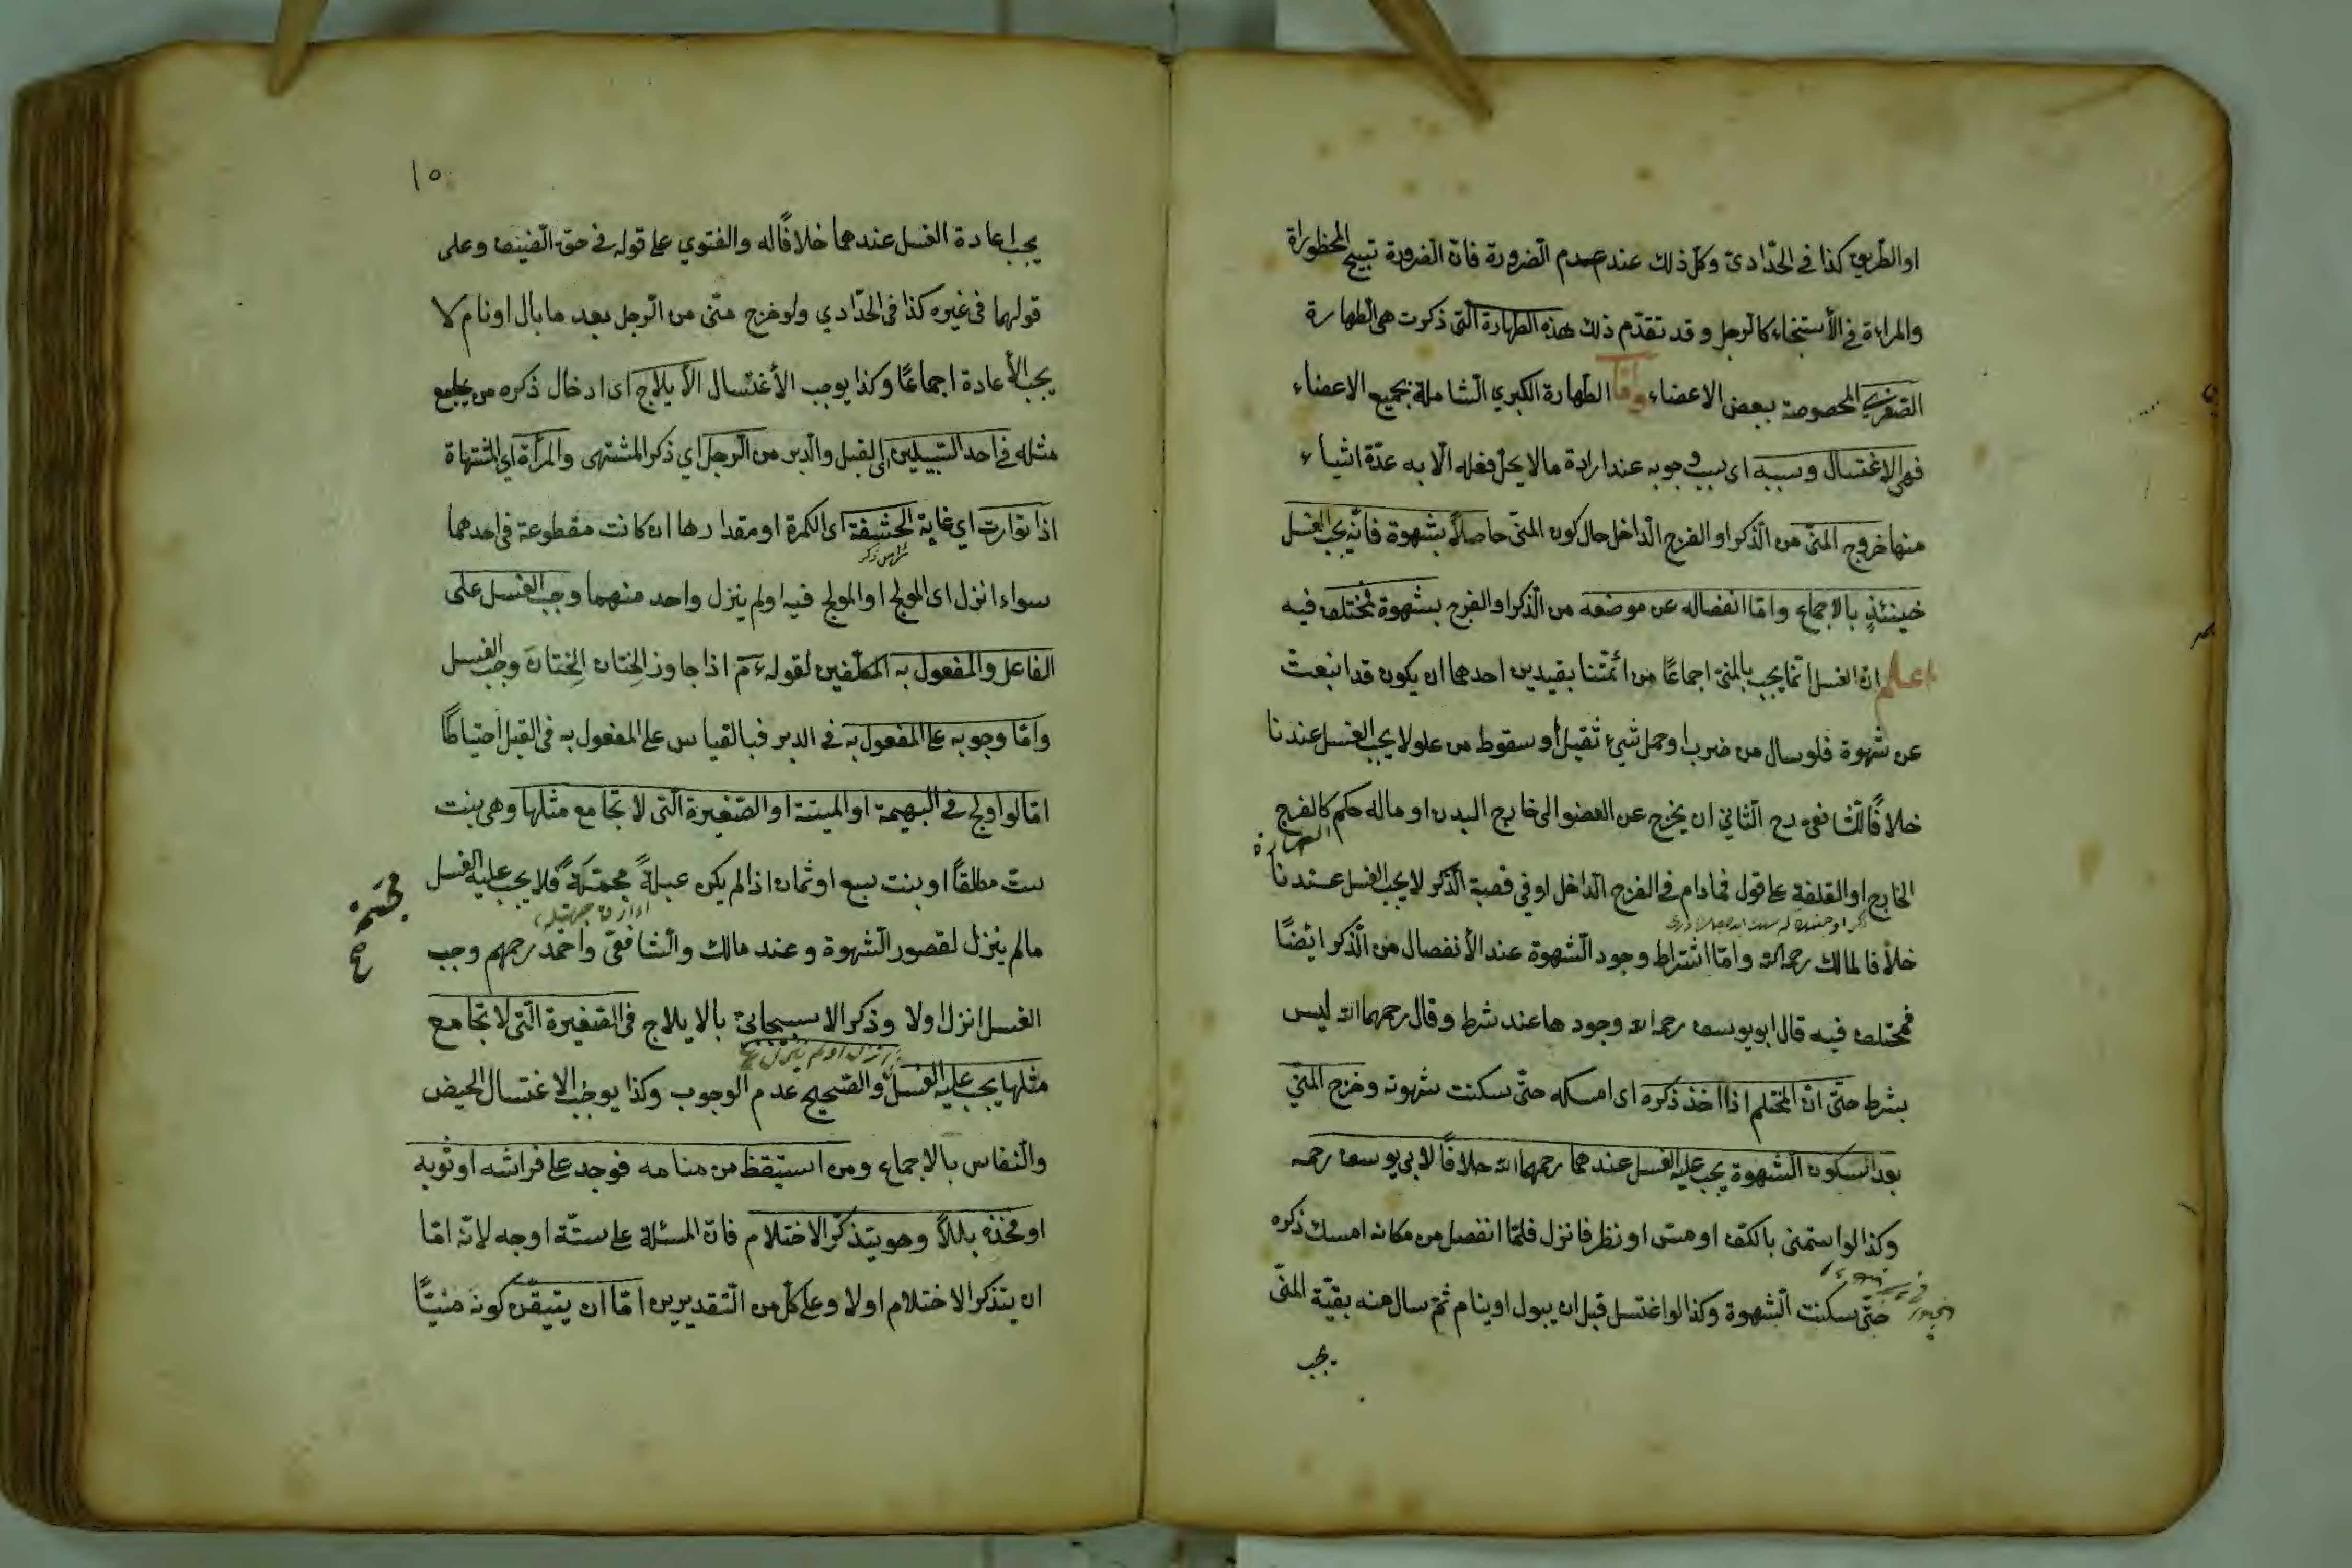 او الطّريق كذا في الحدّاديّ وكلّ ذلك عند عدم الضّرورة فانّ الضّرورة تبيح المحظوراة
والمراءة في الأستنجاء كالرّجل وقد تقدّم ذلك هذه الطهارة الّتى ذكرت هي الطهارة
الصّغرى المخصوصة ببعض الاعضاء وامّا الطّهارة الكبري الشّاملة بجميع الاعضاء
فهى الاغتسال وسببه اى سبب وجوبه عند ارادة مالا يحلّ فعله الّا به عدّة اشياء
منها خروج المنىّ من الّذكر او الفرج الّداخل حال كون المنىّ حاصلاً بشهوة فانّه يجب الغسل
حينئذٍ بالاجماع وامّا انفصاله عن موضعه من الّذكر او الفرج بشهوة فمختلف فيه
اعلم انّ الغسل انّما يجب بالمنىّ اجماعًا من ائمّتنا بقيدين احدهما ان يكون قد انبعث
عن شهوة فلو سال من ضرب او حمل شيءٍ ثقيل أو سقوط من علو لا يجب الغسل عندنا
خلافًا للشّافعى رح الثّاني ان يخرج عن العضو الى خارج البدن او ماله حكم كالفرج
الخارج او القلفة على قول فمادام في الفرج الّداخل او في قصبة الّذكر لا يجب الغسل عندنا
خلافا لمالك رحمه الله وامّا اشتراط وجود الشّهوة عند الأنفصال من الّذكر ايضًا
فمختلف فيه قال ابو يوسف رحمه الله وجودها عند شرط وقال رحمهما الله ليس
بشرط حتّى انّ المحتلم اذا اخذ ذكره اى امسكه حتّى سكنت شهوته وخرج المنيّ
بعد السكون الشهوة يجب عليه الغسل عندهما رحمهما الله خلافًا لابي يوسف رحمه
وكذا لو استمنى بالكفّ او مسّ او نظر فانزل فلمّا انفصل من مكانه امسك ذكره
حتّى سكنت الشّهوة وكذا لو اغتسل قبل ان يبول او ينام ثمّ سال منه بقيّة المنىّ
يجب
١٥
يجب اعادة الغسل عندهما خلافًا له والفتوي على قوله في حقّ الضّيف وعلى
قولهما في غيره كذا في الحدّادي ولو خرج منّى من الرّجل بعد ما بال او نام لا
يجب الأعادة اجماعًا وكذا يوجب الأغتسال الأيلاج اى ادخال ذكره من يجامع
مثله في احد السّبيلين اى القبل والدّبر من الرّجل اي ذكر المشتهى والمرأة اي المشتهاة
اذا توارت اي غاية الحشفة اى الكمرة او مقدارها ان كانت مقطوعة في احدهما
سواء انزل اى المولج او المولج فيه اولم ينزل واحد منهما وجب الغسل على
الفاعل والمفعول به المكلّفين لقوله ءم اذا جاوز الختان الختانَ وجب الغسل
وامّا وجوبه على المفعول به في الدبر فبالقياس على المفعول به في القبل احتياطًا
امّا لو اولج في البهيمة او الميتة او الصّغيرة الّتى لا تجامع مثلها وهى بنت
ستّ مطلقًا او بنت سبع او ثمان اذا لم يكن عبلةً فلا يجب عليه الغسل
مالم ينزل لقصور الشّهوة وعند مالك والشّافعيّ واحمد رحمهم وجب
الغسل انزل اولا وذكر الاسبيجابيّ بالايلاج في الصّغيرة الّتى لا تجامع
او لم ينزل
مثلها يجب عليه الغسل والصّحيح عدم الوجوب وكذا يوجب الاغتسال الحيض
والنّفاس بالاجماع ومن استيقظ من منامه فوجد على فراشه او ثوبه
او فخذه بللاً وهو يتذكّر الاحتلام فانّ المسئلة على ستّة اوجه لانّه امّا
ان يتذكر الاحتلام اولا وعلى كلّ من التّقديرين امّا ان يتيقّن كونه منيًّا